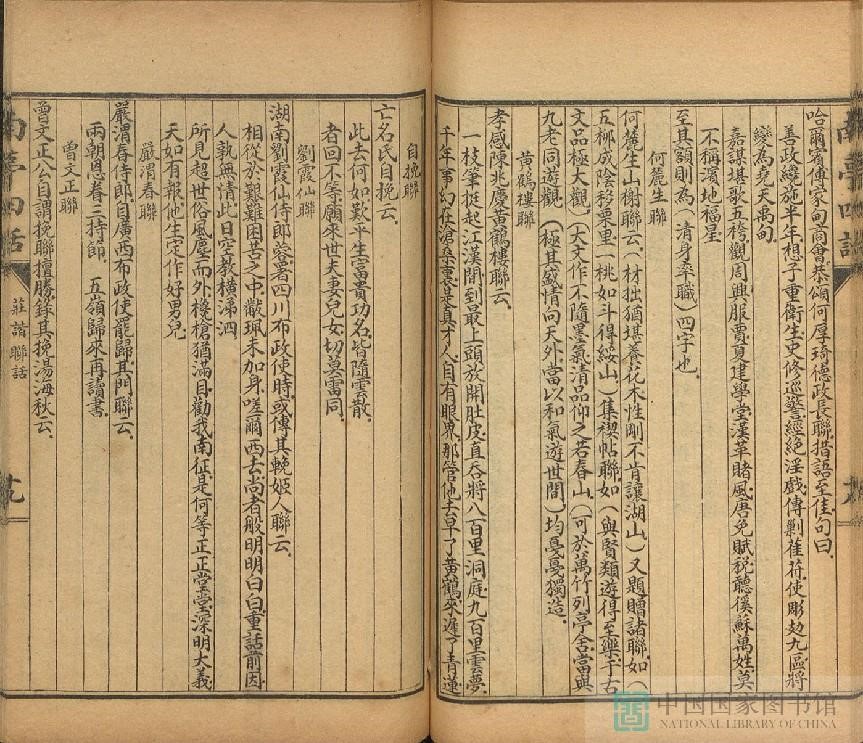 哈爾賓傅家甸商會恭頌何厚琦德政長聯措語至佳句曰
善政纔施半年想子重衛生史修巡警經絕淫戲傳剿萑苻使彫边九區將
變為堯天禹甸
嘉謀堪歌五袴觀周興服賈夏建學堂漢革賭風唐免賦稅聽徯蘇萬姓莫
不稱濱地福星
至其額則為（清身率職）四字也
何麓生聯
何麓生山榭聯云（材拙猶堪養花木性剛不肯讓湖山）又題贈諸聯如（
五柳成陰移栗里一桃如斗得綏山）集禊帖聯如（與賢類遊得至樂于古
文品極大觀）（大文作不隨墨氣清品仰之若春山）（可於萬竹列亭舍當與
九老同遊觀）（極其盛情向天外當以和氣遊世間）均憂憂獨造
黄鶴樓聯
孝感陳兆慶黃鶴樓聯云
一枝筆挺起江漢間到最上頭放開肚皮直吞將八百里洞庭九百里雲夢
千年事幻在滄桑裏是真才人自有眼界那管他去早了黃鶴來遲了青蓮
自挽聯
亡名氏自挽云
此去何如歎平生富貴功名皆隨雲散
者回不等願來世夫妻兒女切莫雷同
劉霞仙聯
湖南劉霞仙侍郎蓉署四川布政使時或傳其輓姬人聯云
相從於艱難困苦之中黻珮未加身嗟爾西去尚者般明明白白重話前因
人孰無情此日空教橫涕泗
所見超世俗風塵而外欃槍猶滿目勸我南征是何等正正堂堂深明大義
天如有報他生定作好男兒
嚴渭春聯
嚴渭春侍郎自廣西布政使罷歸其門聯云
兩朝恩眷三持節　五嶺歸來再讀書
曾文正聯
曾文正公自謂挽聯擅勝錄其挽湯海秋云
南亭四話
莊諧聯話